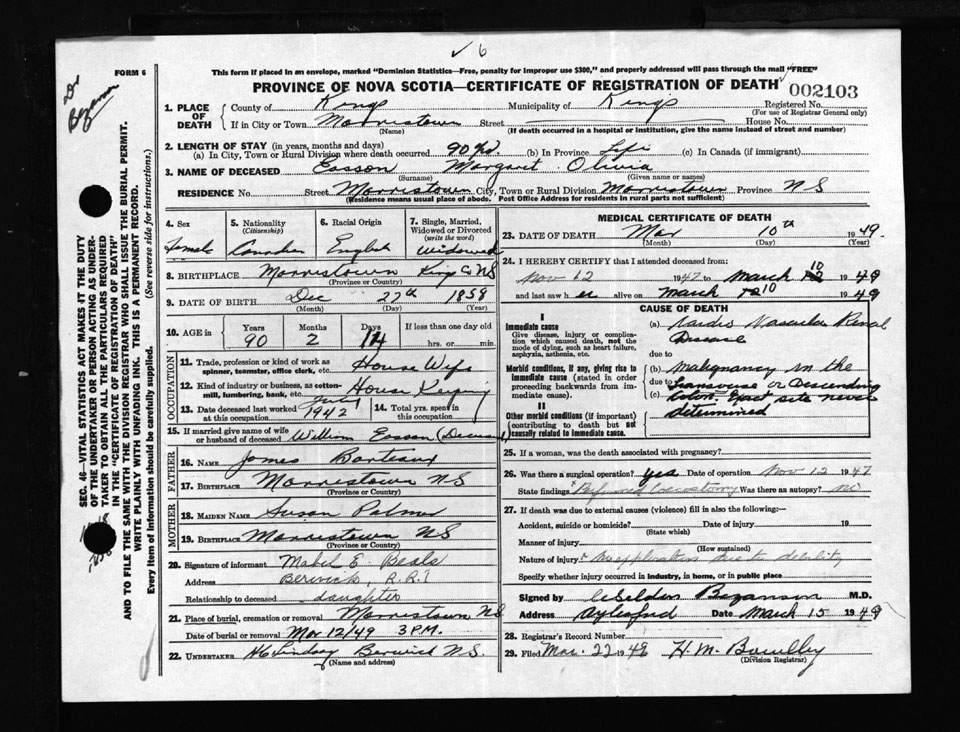 ✓ 6
FORM 6
Dr
Bezanson
This form if placed in an envelope, marked "Dominion Statistics—Free, penalty for improper use $300," and properly addressed will pass through the mail "FREE"
PROVINCE OF NOVA SCOTIA—CERTIFICATE OF REGISTRATION OF DEATH 002103
1. PLACE OF DEATH County of Kings Municipality of Kings Registered No.
(For use of Registrar General only)
If in City or Town Morristown Street House No.
(Name) (If death occurred in a hospital or institution, give the name instead of street and number)
2. LENGTH OF STAY (in years, months and days)
(a) In City, Town or Rural Division where death occurred 90 yrs. (b) In Province Life (c) In Canada (if immigrant)
3. NAME OF DECEASED Easson Margaret Olivia
(Surname) (Given name or names)
RESIDENCE No. Street Morristown City, Town or Rural Division Morristown Province N S
(Residence means usual place of abode. Post Office Address for residents in rural parts not sufficient)
4. Sex 5. Nationality (Citizenship) 6. Racial Origin 7. Single, Married, Widowed or Divorced (write the word)
Female Canadian English Widowed
8. BIRTHPLACE Morristown Kings Co NS
(Province or Country)
9. DATE OF BIRTH Dec 27th 1858
(Month) (Day) (Year)
10. AGE in Years Months Days If less than one day old
90 2 14 hrs. or min.
OCCUPATION
11. Trade, profession or kind of work as spinner, teamster, office clerk, etc. House Wife
12. Kind of industry or business, as cotton-mill, lumbering, bank, etc. House Keeping
13. Date deceased last worked at this occupation 1942 14. Total yrs. spent in this occupation
15. If married give name of wife or husband of deceased William Easson (Deceased)
FATHER
16. NAME James Barteaux
17. BIRTHPLACE Morristown N S
(Province or Country)
MOTHER
18. MAIDEN NAME Susan Palmer
19. BIRTHPLACE Morristown N S
(Province or Country)
20. Signature of informant Mabel E Beals
Address Berwick, R.R.1
Relationship to deceased daughter
21. Place of burial, cremation or removal Morristown NS
Date of burial or removal Mar 12/49 3 P.M.
22. UNDERTAKER H C Lindsay Berwick N.S.
(Name and address)
MEDICAL CERTIFICATE OF DEATH
23. DATE OF DEATH Mar 10th 1949
(Month) (Day) (Year)
24. I HEREBY CERTIFY that I attended deceased from:
Nov 12 1947 to March 10 1949
and last saw her alive on March 10 1949
CAUSE OF DEATH
I
Immediate cause
Give disease, injury or complication which caused death, not the mode of dying, such as heart failure, asphyxia, asthenia, etc.
(a) Cardio Vascular Renal
Disease
due to
Morbid conditions, if any, giving rise to immediate cause (stated in order proceeding backwards from immediate cause).
(b) Malignancy in the
due to Transverse or Descending
(c) Colon. Exact site never
determined
II
Other morbid conditions (if important) contributing to death but not causally related to immediate cause.
25. If a woman, was the death associated with pregnancy?
26. Was there a surgical operation? yes Date of operation Nov 12 1947
State findings Performed Caecostomy Was there an autopsy? no
27. If death was due to external causes (violence) fill in also the following:—
Accident, suicide or homicide? Date of injury 19
(State which)
Manner of injury
(How sustained)
Nature of injury debility
Specify whether injury occurred in industry, in home, or in public place
Signed by Selden Bezanson M.D.
Address Aylesford Date March 15 1949
28. Registrar's Record Number
29. Filed Mar. 22 1949 H. M.
(Division Registrar)
SEC. 46—VITAL STATISTICS ACT MAKES IT THE DUTY
OF THE UNDERTAKER OR PERSON ACTING AS UNDERTAKER
TO OBTAIN ALL THE PARTICULARS REQUIRED
IN THE "CERTIFICATE OF REGISTRATION OF DEATH"
AND TO FILE THE SAME WITH THE DIVISION REGISTRAR WHO SHALL ISSUE THE BURIAL PERMIT.
WRITE PLAINLY WITH UNFADING INK. THIS IS A PERMANENT RECORD.
Every item of information should be carefully supplied. (See reverse side for instructions.)